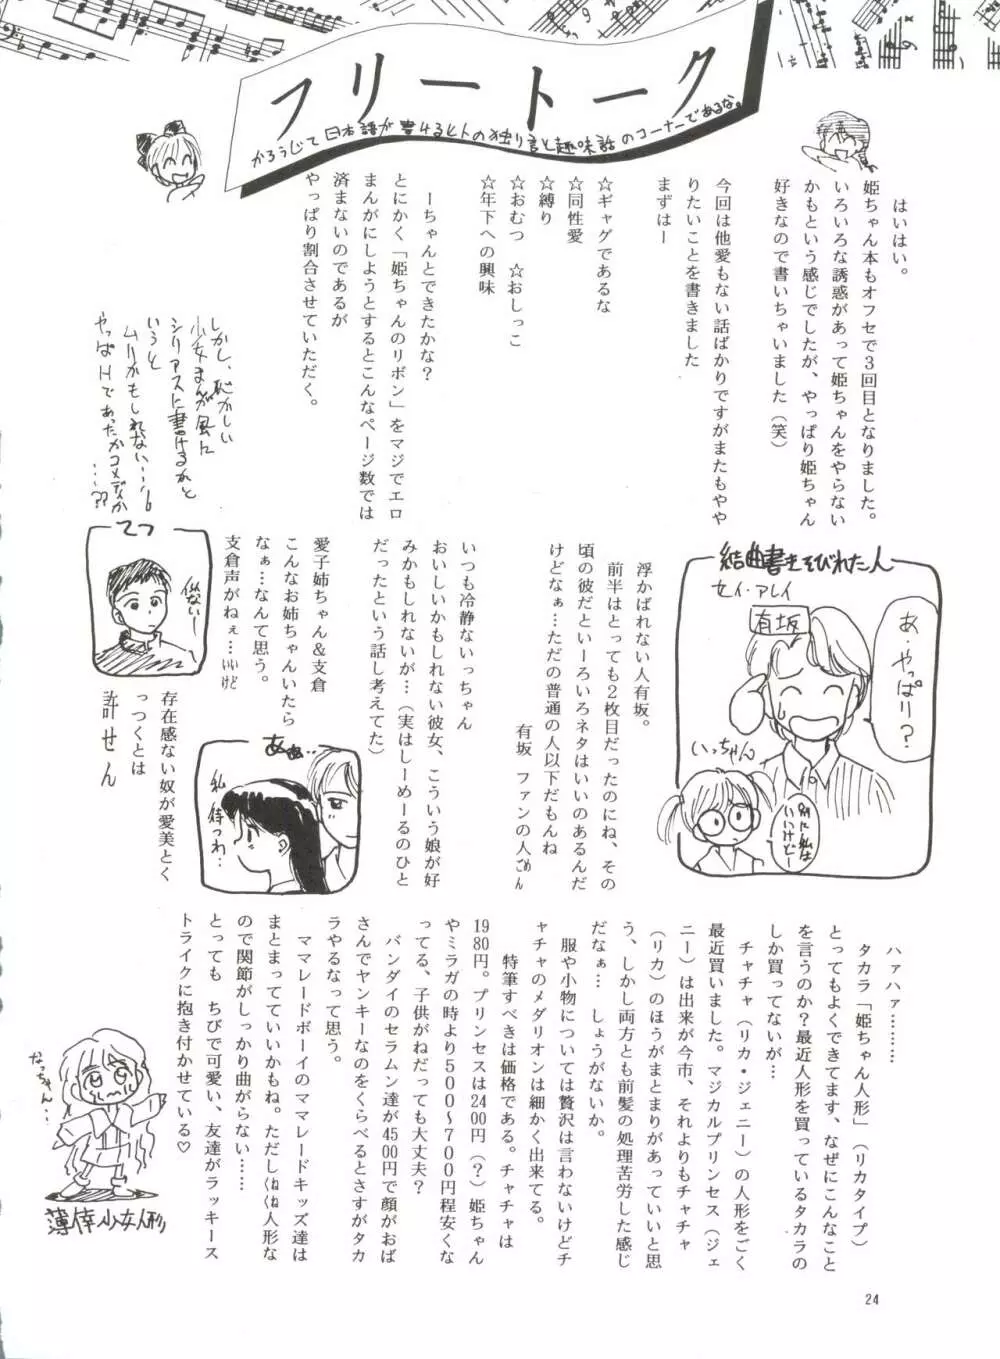 フリートーク
かろうじて日本語が書けるヒトの独り言と趣味話のコーナーであるな。
はいはい。
姫ちゃん本もオフセで3回目となりました。
いろいろな誘惑があって姫ちゃんをやらない
かもという感じでしたが、やっぱり姫ちゃん
好きなので書いちゃいました（笑）
今回は他愛もない話ばかりですがまたもやや
りたいことを書きました
まずはー
☆ギャグであるな
☆同性愛
☆縛り
☆おむつ ☆おしっこ
☆年下への興味
ーちゃんとできたかな？
とにかく「姫ちゃんのリボン」をマジでエロ
まんがにしようとするとこんなページ数では
済まないのであるが
やっぱり割合させていただく。
しかし、恥かしい
少女まんが風に
シリアスに書けるかと
いうと
ムリかもしれない…
やっぱHであったかコメディか
…??
結曲書きそびれた人
セイ・アレイ
有坂
あ、やっぱり？
いっちゃん
別に私は
いいけどー
浮かばれない人有坂。
前半はとっても2枚目だったのにね、その
頃の彼だといーろいろネタはいいのあるんだ
けどなぁ…ただの普通の人以下だもんね
有坂 ファンの人ごめん
いつも冷静ないっちゃん
おいしいかもしれない彼女、こういう娘が好
みかもしれないが…（実はしーめーるのひと
だったという話し考えてた）
愛子姉ちゃん＆支倉
こんなお姉ちゃんいたら
なぁ…なんて思う。
支倉声がねぇ…いいけど
てつ
似ないー
あぁ…
私
待つわ…
存在感ない奴が愛美とく
っつくとは
許せん
ハァハァ…………
タカラ「姫ちゃん人形」（リカタイプ）
とってもよくできてます、なぜにこんなこと
を言うのか？最近人形を買っているタカラの
しか買ってないが…
チャチャ（リカ・ジェニー）の人形をごく
最近買いました。マジカルプリンセス（ジェ
ニー）は出来が今市、それよりもチャチャ
（リカ）のほうがまとまりがあっていいと思
う、しかし両方とも前髪の処理苦労した感じ
だなぁ… しょうがないか。
服や小物については贅沢は言わないけどチ
ャチャのメダリオンは細かく出来てる。
特筆すべきは価格である。チャチャは
1980円。プリンセスは2400円（？）姫ちゃん
やミラガの時より500〜700円程安くな
ってる、子供がねだっても大丈夫？
バンダイのセラムン達が4500円で顔がおば
さんでヤンキーなのをくらべるとさすがタカ
ラやるなって思う。
ママレードボーイのママレードキッズ達は
まとまってていいかもね。ただしくねくね人形な
ので関節がしっかり曲がらない……
とっても ちびで可愛い、友達がラッキース
トライクに抱き付かせている♡
なっちゃん…
薄倖少女人形
24